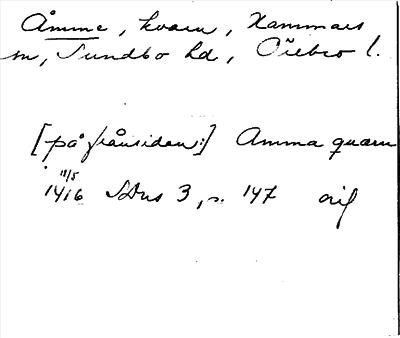 Åmme, kvarn, Hammars
sn, Sundbo hd, Örebro l.
[på frånsidan:] Amma quarn
18/5
1416 SDns 3, s. 147 orig